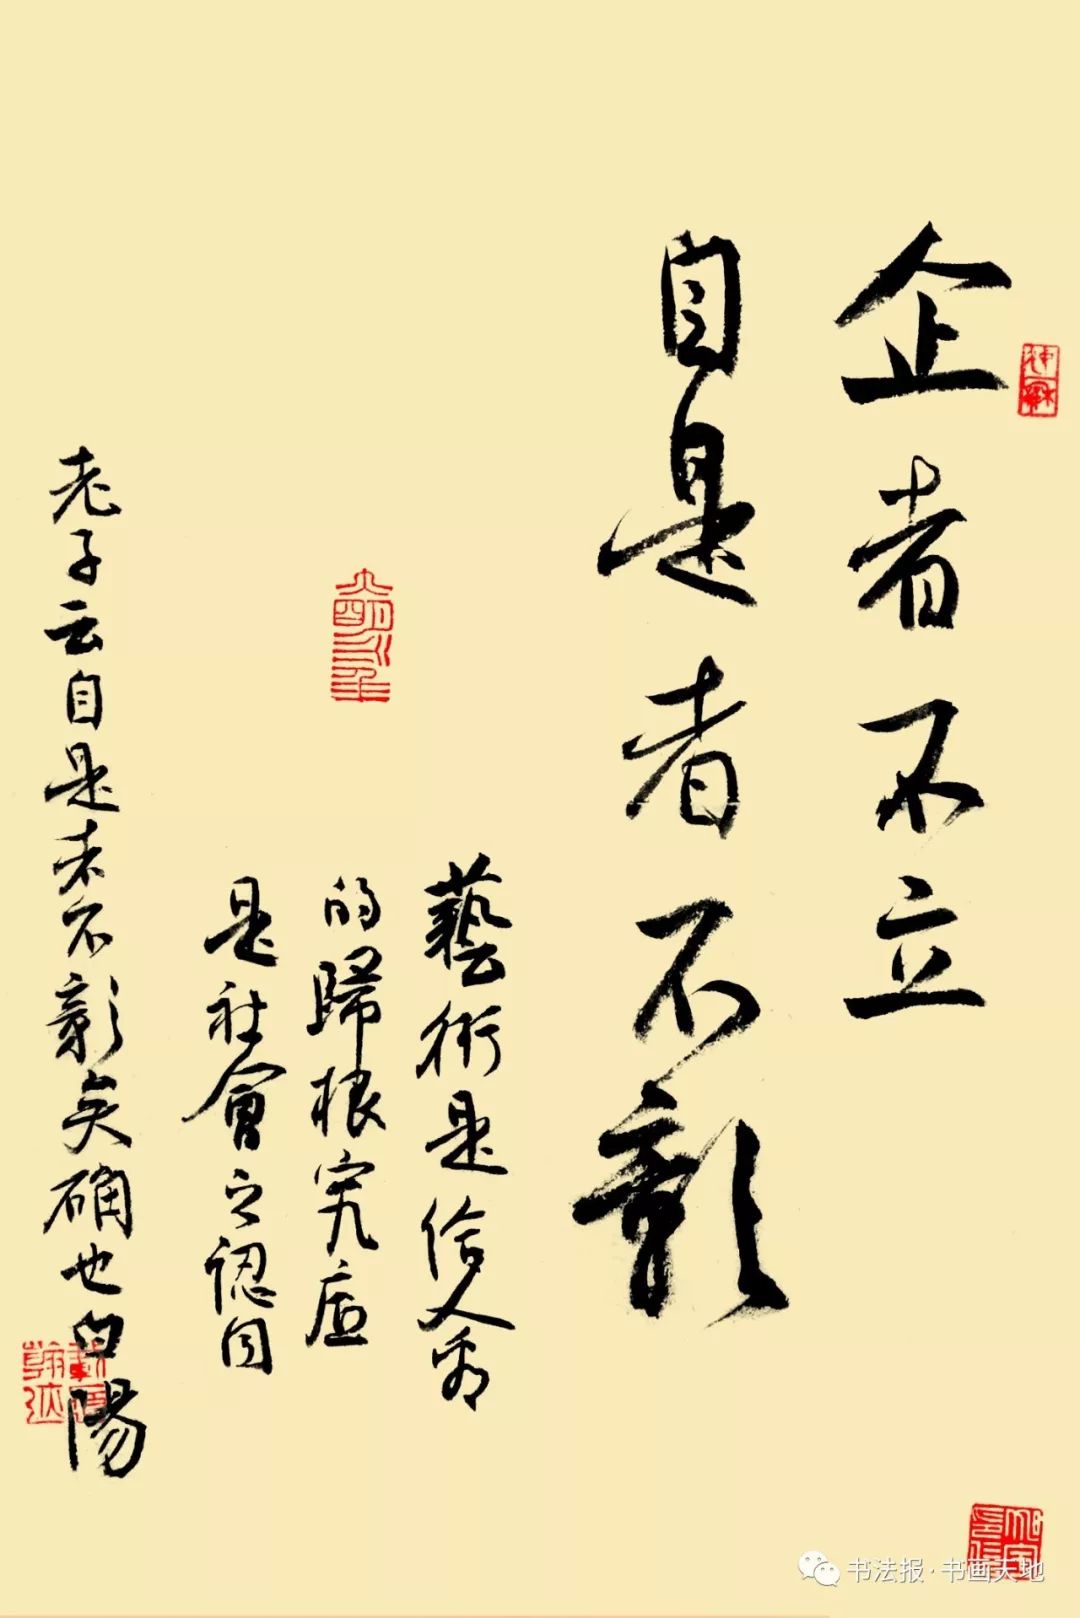 企者不立
自是者不彰
藝術是给人看
的歸根究底
是社會之認同
老子云自是者不彰矣确也白陽
书法报·书画天地